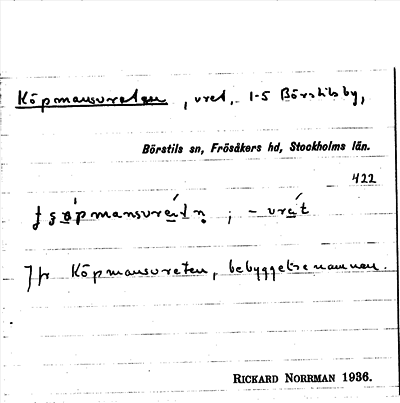 Köpmansvreten, vret, 1-5 Börstilsby,
Börstils sn, Frösåkers hd, Stockholms län.
422
Jfr Köpmansvreten, bebyggelsenamnen.
RICKARD NORRMAN 1936.